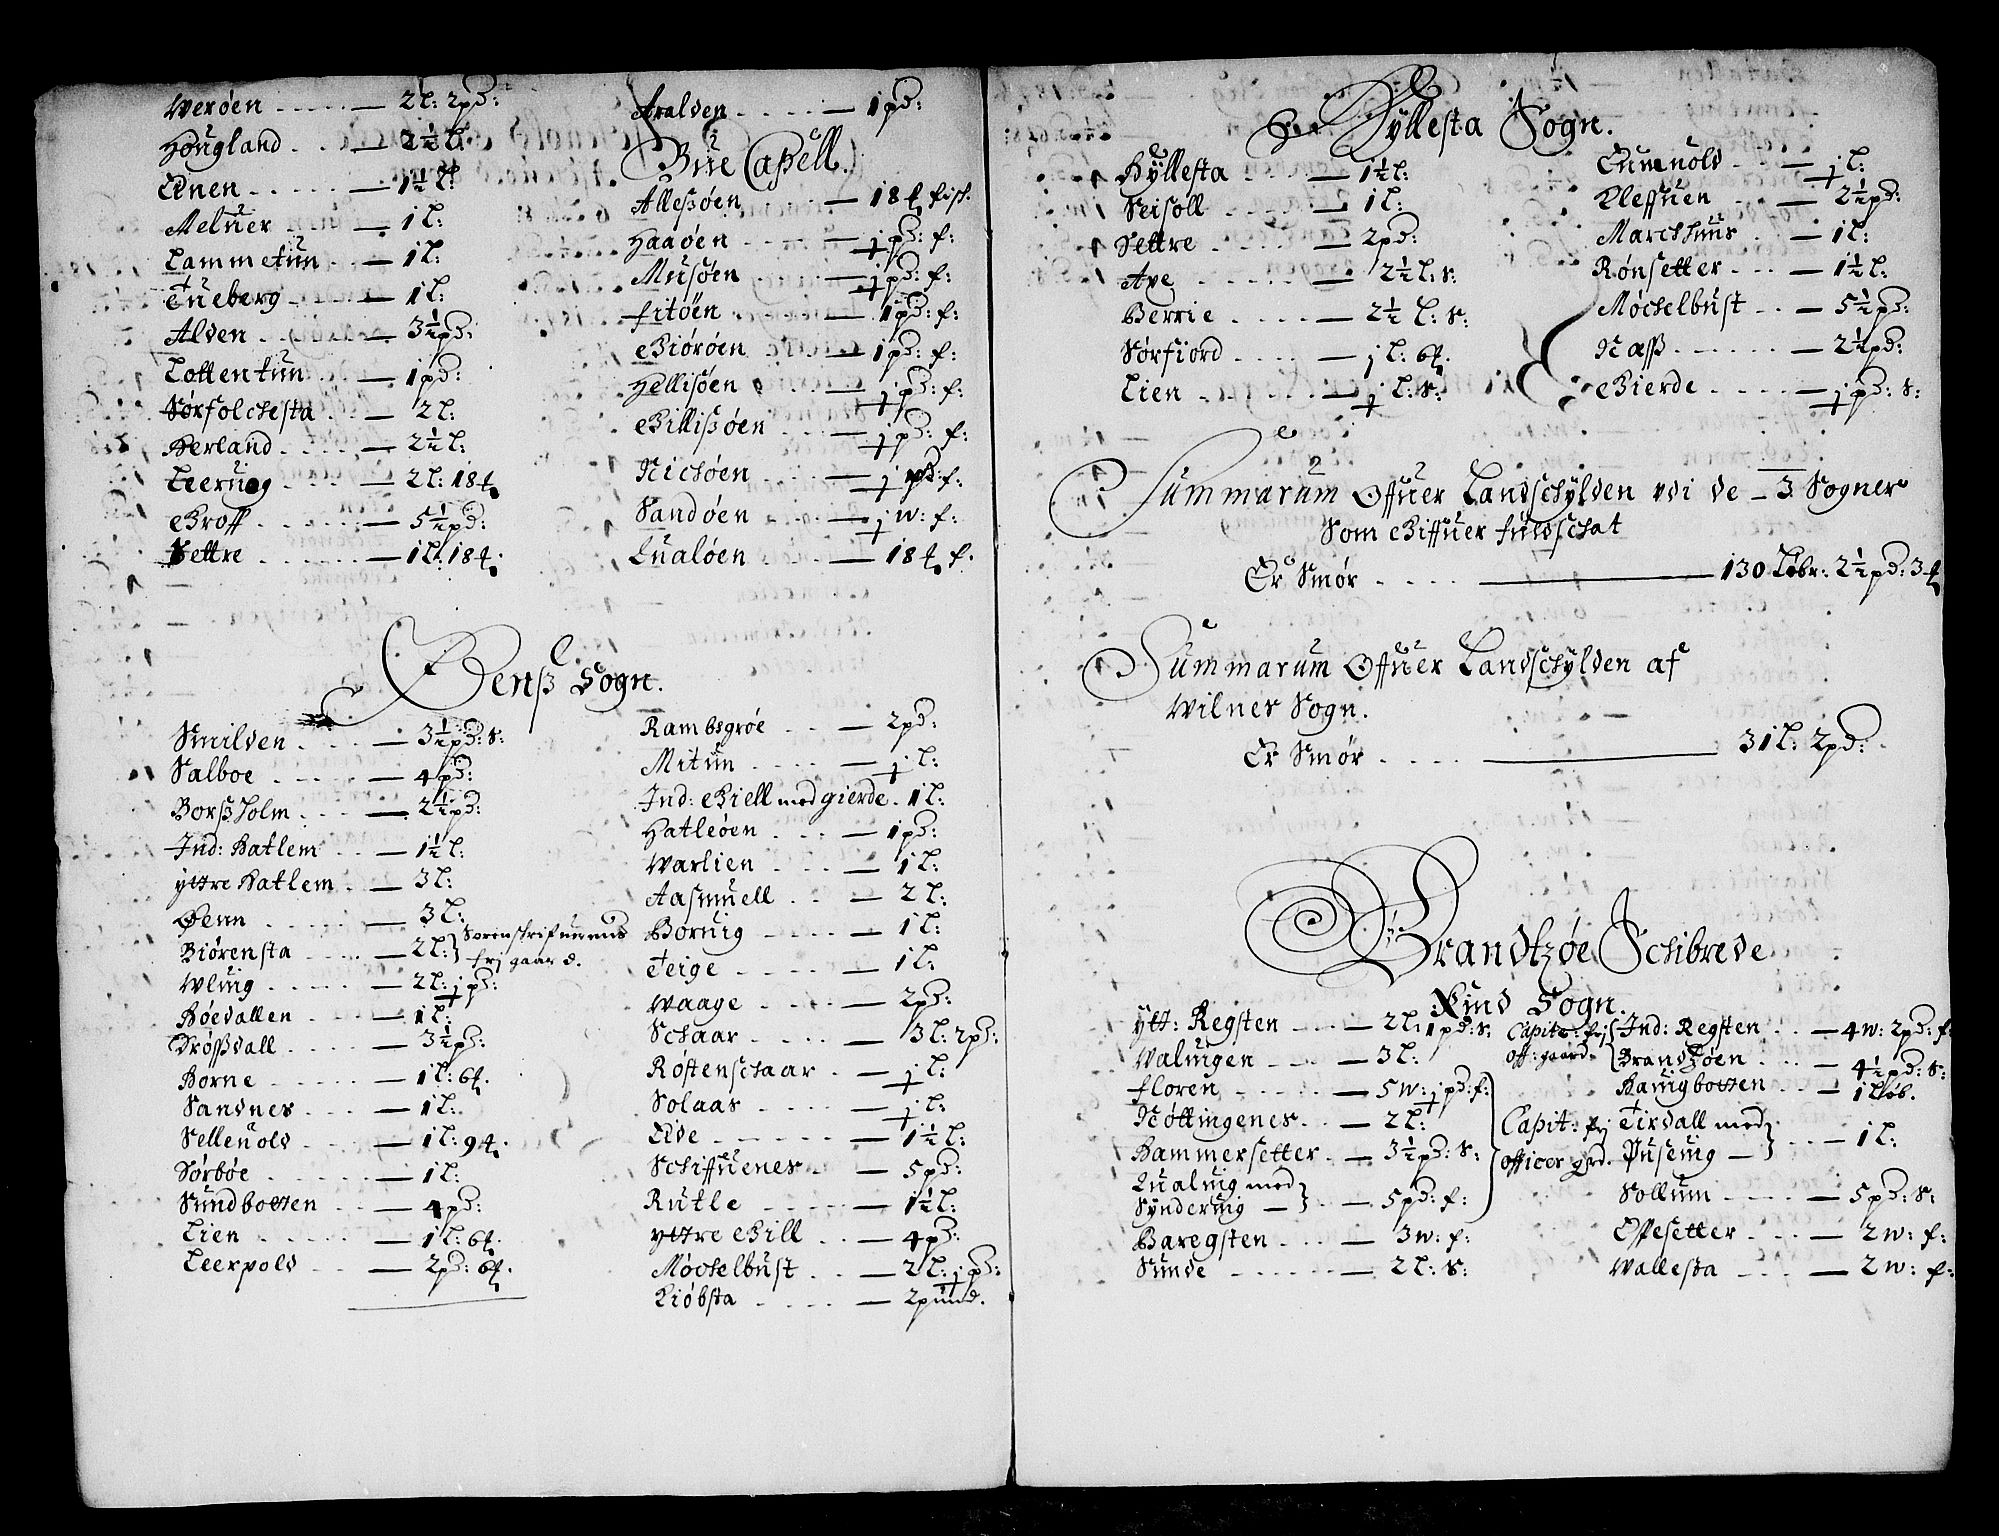 Werøen — 2 l: 2 pd:
Hougland — 2½ l:
Enen — 1½ l:
Meluer — 1 l:
Lammetun — 1 l:
Tueberg — 1 l:
Alden — 3½ pd:
Lottentun — 1 pd:
Sørfolchesta — 2 l:
Herland — 2½ l:
Leeruog — 2 l: 18 ℔
Groff — 5½ pd:
Settre — 1 l: 18 ℔.
Aralden — 1 pd:
Bue Capell.
Allesøen — 18 ℔ fisk.
Haaøen — j pd: f:
Musøen — j pd: f:
fitøen — 1 pd: f:
Giörøen — 1 pd: f:
Hellisøen — j pd: f:
Gillisøen — j pd: f:
Nichøen — j pd: f:
Sandøen — j w: f:
Lualøen — 18 ℔ f.
Øenß Sogn.
Smilden — 3½ pd: s:
Salboe — 4 pd:
Borßholm — 2½ pd:
Ind: Hatlem — 1½ l:
yttre Hatlem — 3 l:
Øenn — 3 l:
Biørensta — 2 l: } Sorenskrifuerens
fri gaard.
Wluig — 2 l: j pd:
Høedallen — 1 l:
Drøßdall — 3½ pd:
Hørne — 1 l: 6 ℔.
Sandnes — 1 l:
Selleuold — 1 l: 9 ℔.
Sørbøe — 1 l:
Sundbotten — 4 pd:
Lien — 1 l: 6 ℔.
Leerpold — 2 pd: 6 ℔.
Rambsgrøe — 2 pd:
Mitun — j l:
Ind: Giell med gierde. 1 l:
Hatleøen — 1 pd:
Warlien — 1 l:
Aasmuell — 2 l:
Boruig — 1 l:
Teige — 1 l:
Waage — 2 pd:
Schaar — 3 l: 2 pd:
Røstenschaar — j l:
Solaas — j l:
Eide — 1½ l:
Schiffuenes — 5 pd:
Rutle — 1½ l:
yttre Gill — 4 pd:
Møchelbust — 2 l: j pd:
Liøbsta — 2 pund.
Hyllesta Sogn.
Hyllesta — 1½ l:
Seisoll — 1 l:
Settre — 2 pd:
Ave — 2½ l: s:
Berrie — 2½ l: s:
Sørfiord — j l: 6 ℔.
Lien — j l: s:
Eumuold — j l:
Eleffuen — 2½ pd:
Marchhuus — 1 l:
Rønsetter — 1½ l:
Møchelbust — 5½ pd:
Naß — 2½ pd:
Gierde — j pd: s:
Summarum Offuer Landschylden vdi de 3 Sogner
Som Giffuer fuldschat
Er Smør — 130 Løbr: 2½ pd: 3 ℔
Summarum Offuer Landschylden af
Wilnes Sogn.
Er Smør — 31 l: 2 pd:
Brandtzøe Schibrede
Kind Sogn.
ytt: Regsten — 2 l: 1 pd: s:
Waluigen — 3 l:
floren — 5 w: j pd: f:
Nøttingenes — 2 l:
Hammersetter — 3½ pd: s:
Lualuig med
Synderuig — } 5 pd: f:
Baregsten — 3 w: f:
Sunde — 2 l: s:
Capit: frj
off: gaard
Capit: frj
officer grd.
Ind: Regsten — 4 w: 2 pd: f:
Brandzøen — 4½ pd: s:
Hauigbotten — 1 løb.
Tirdall med
Huseuig — } 1 l:
Sollum — 5 pd: s:
Essesetter — 2 w: f:
Wallesta — 2 w: f: